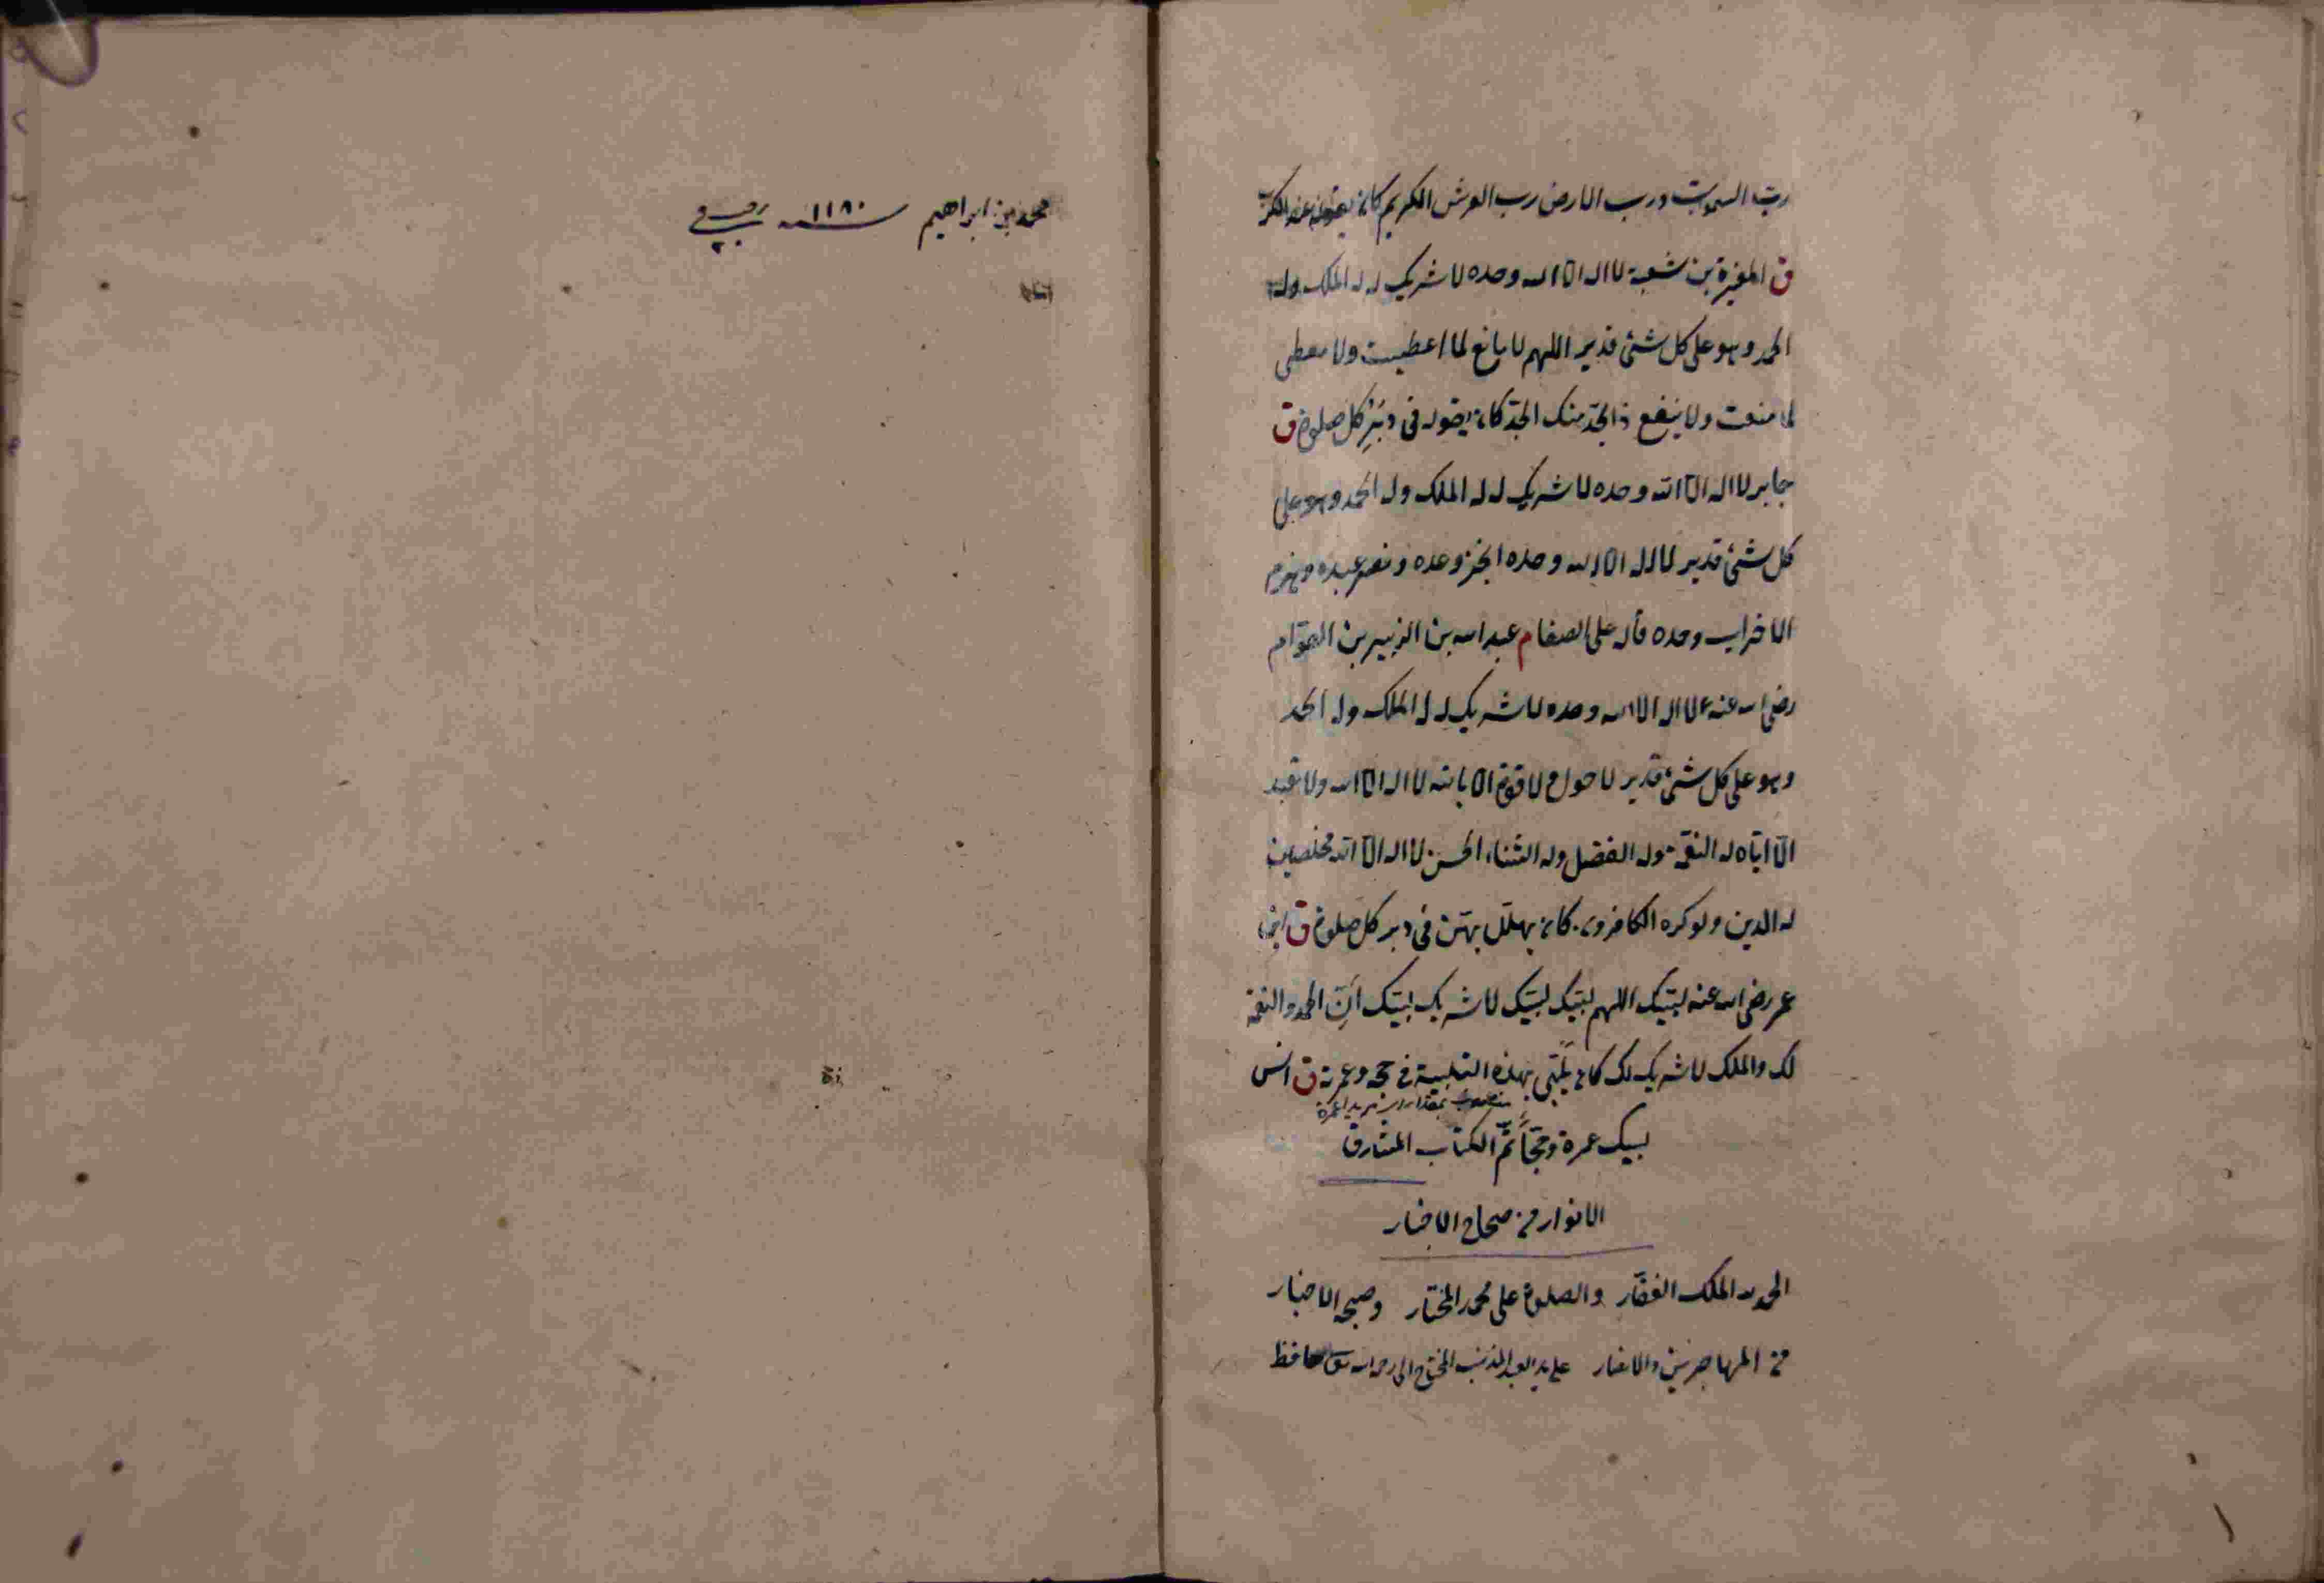 رب السموات ورب الارض رب العرش الكريم كان يقوله عند الكرب
ق المغيرة بن شعبة لا اله الا الله وحده لا شريك له له الملك وله
الحمد وهو على كل شئ قدير اللهم لا مانع لما اعطيت ولا معطى
لما منعت ولا ينفع ذا الجد منك الجد كان يقوله فى دبر كل صلوة ق
جابر لا اله الا الله وحده لا شريك له له الملك وله الحمد وهو على
كل شئ قدير لا اله الا الله وحده انجز وعده ونصر عبده وهزم
الاحزاب وحده قاله على الصفا م عبد الله بن الزبير بن العوام
رضى الله عنه لا اله الا الله وحده لا شريك له له الملك وله الحمد
وهو على كل شئ قدير لا حول ولا قوة الا بالله لا اله الا الله ولا نعبد
الّا ايّاه له النعمة وله الفضل وله الثناء الحسن لا اله الّا الله مخلصين
له الدين ولو كره الكافرون كان يهلّل بهنّ فى دبر كل صلوة ق ابن
عمر رضى الله عنه لبّيك اللهم لبّيك لبّيك لا شريك لك لبّيك انّ الحمد والنعمة
لك والملك لا شريك لك كان يلبّى بهذه التلبية فى حجه وعمرته ق انس
منصوب بمقدر اى نريد عمرة
لبيك عمرة وحجّاً تمّ الكتاب المشارق
الانوار من صحاح الاخبار
الحمد لله الملك الغفّار والصلوة على محمد المختار وصحبه الاخيار
من المهاجرين والانصار على يد العبد المذنب المحتاج الى رحمة الله تعالى حافظ
محمد بن ابراهيم سنه ١١٨٠ رجب فى
٢٠